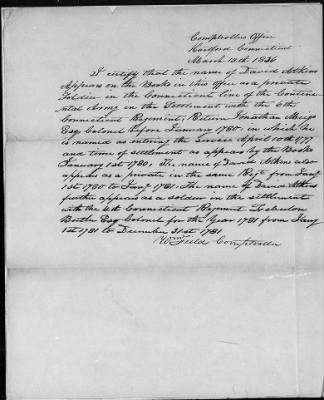 Comptrollers Office
Hartford Connecticut
March 10th 1836
I certify that the name of David Atkins
Appears on the Books in this Office as a private
Soldier in the Connecticut line of the Contine
ntal Army in the Settlement with the 6th
Connecticut Regiment, Return Jonathan Meigs
Esq Colonel before January 1780, in which he
is named as entering the service April 10th 1777
and time of settlement as appears by the Books
January 1st 1780, The name of David Atkins also
appears as a private in the same Regt from Jany
1st 1780 to Jany 1781. The name of David Atkins
further appears as a soldier in the settlement
with the 4th Connecticut Regiment Zebulon
Butler Esq Colonel for the Year 1781 from Jany
1st 1781 to December 31st 1781
Wm Field Comptroller